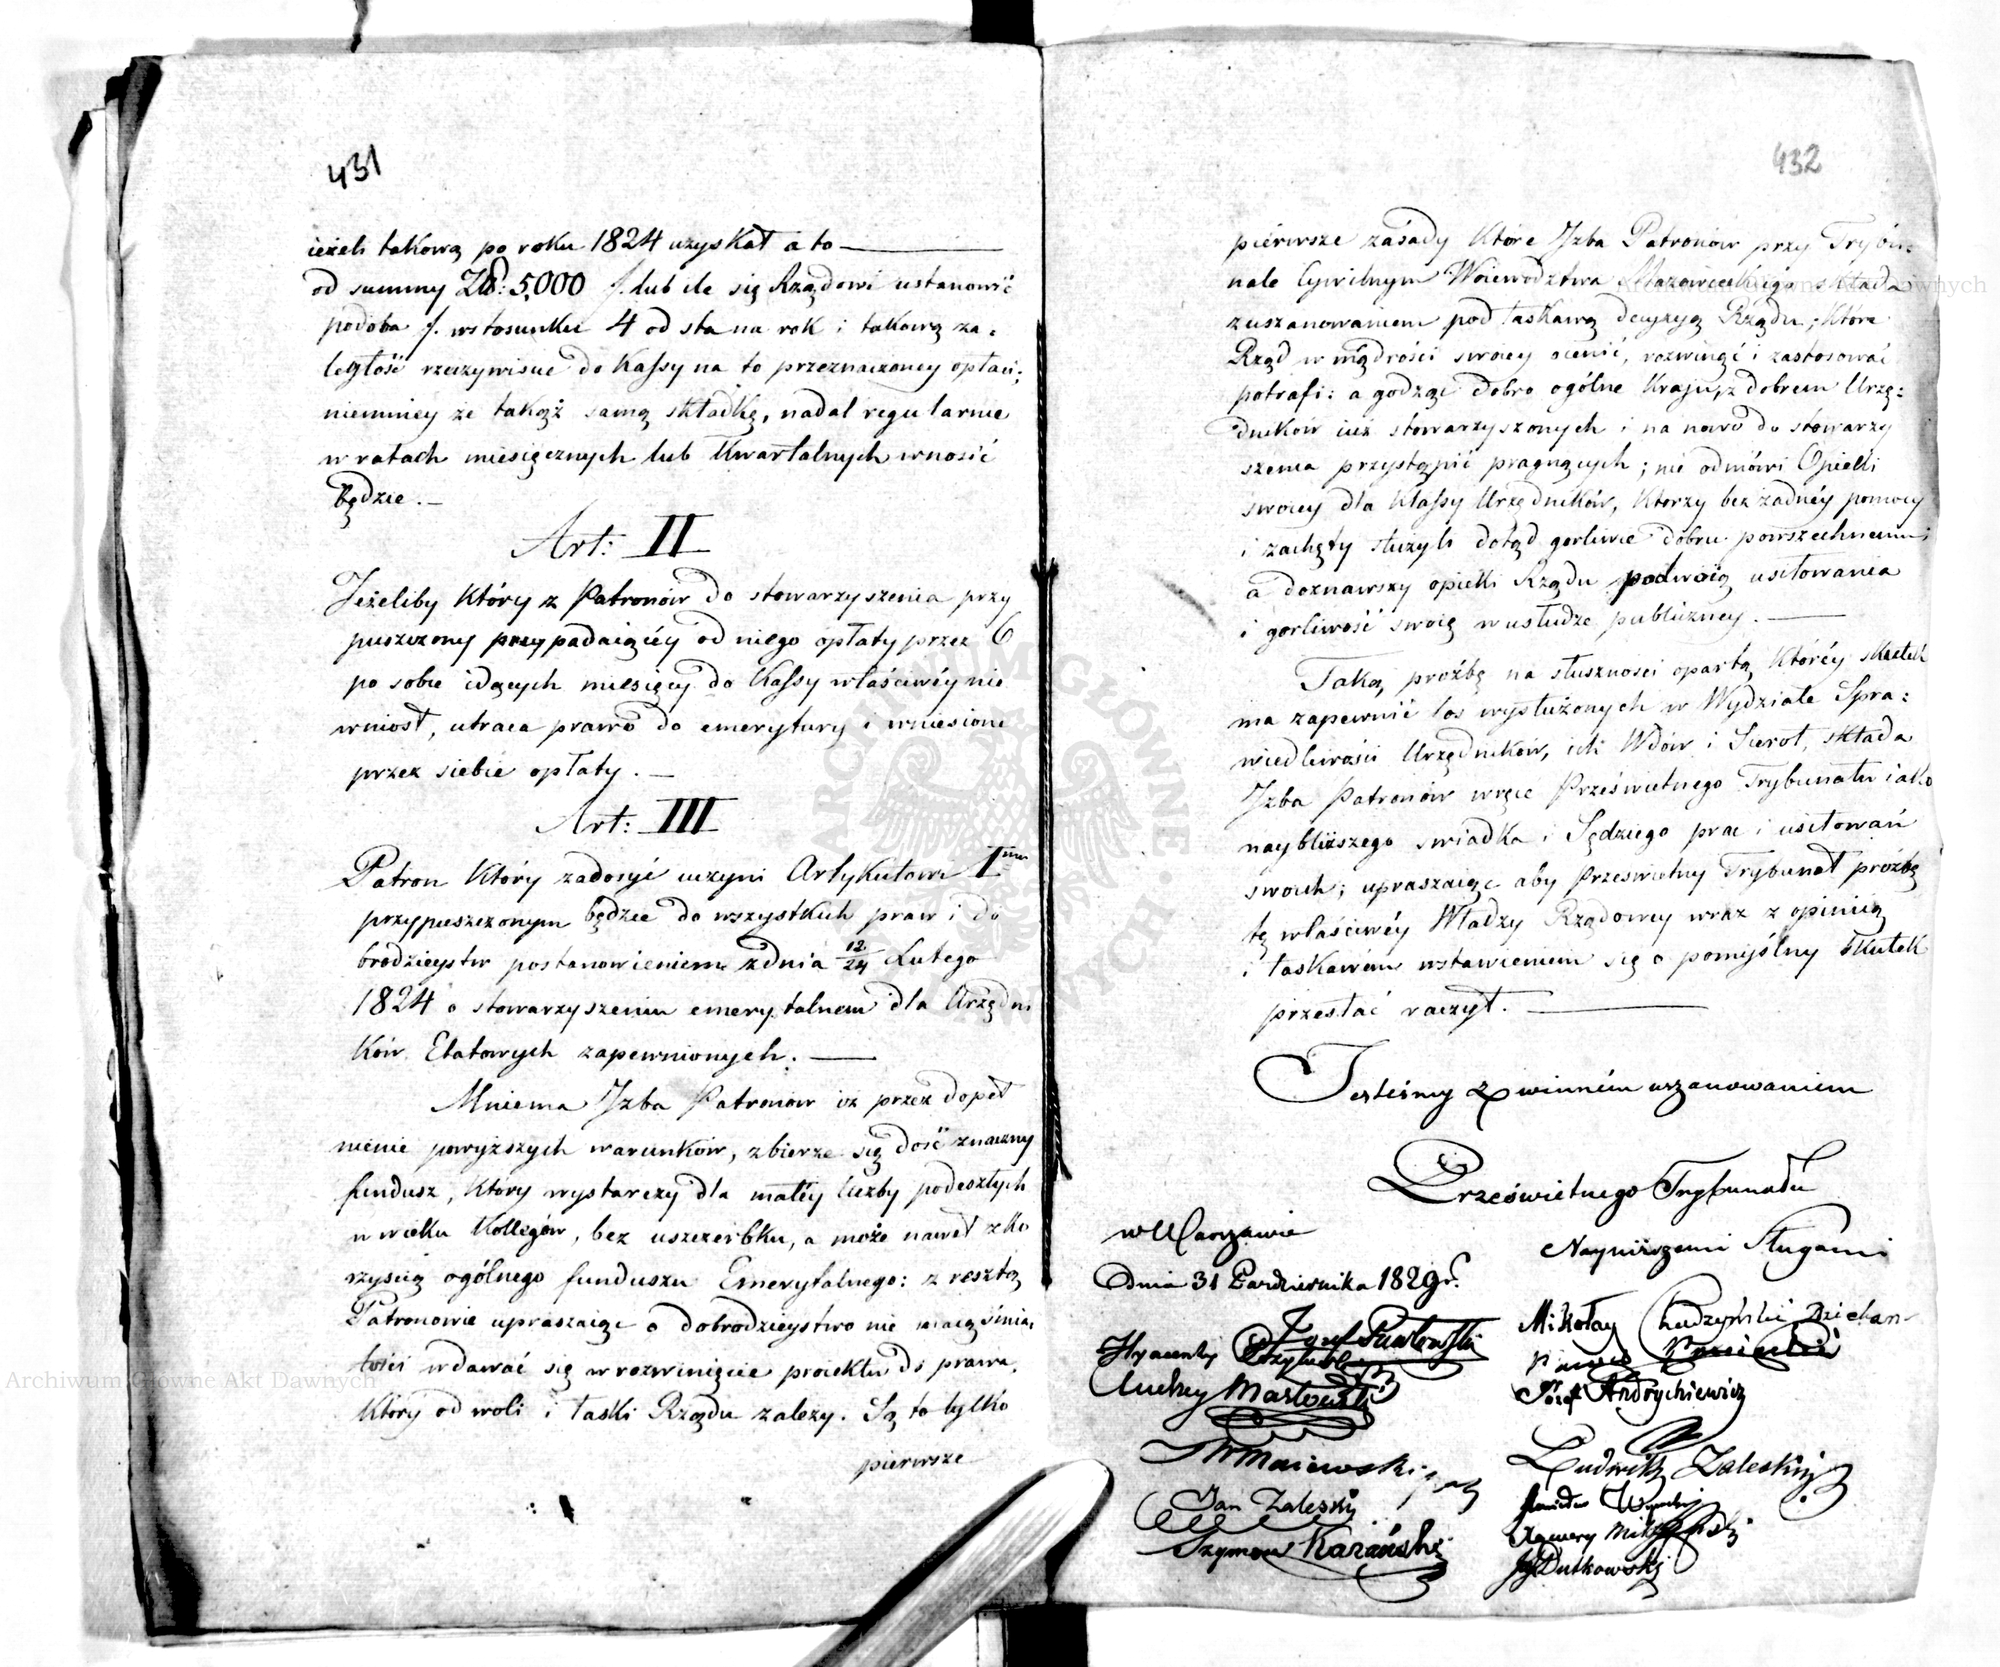 431
ieżeli takową po roku 1824 uzyskał a to
od summy Zł: 5,000 /. lub ile się Rządowi ustanowić
podoba /. wstosunku 4 od sta na rok i takową za-
ległość rzeczywiście do Kassy na to przeznaczoney opłaci;
niemniey że takąż samą składkę, nadal regularnie
w ratach miesięcznych lub Kwartalnych wnosić
będzie.
Art: II
Jeżeliby Który z Patronów do stowarzyszenia przy
puszczony przypadaiącéy od niego opłaty przez 6
po sobie idących miesięcy do Kassy właściwéy nie
wniosł, utraca prawo do emerytury i wniesione
przez siebie opłaty.
Art: III
Patron Który zadosyć uczyni Artykułowi I
przypuszczonym będzie do wszystkich praw i do
brodzieystw postanowieniem zdnia 12/24 Lutego
1824 o stowarzyszeniu emerytalnem dla Urzędni
Ków Etatowych zapewnionych.
Mniema Jzba Patronów iż przez dopeł
nienie powyższych warunków, zbierze się dość znaczny
fundusz, Który wystarczy dla małéy liczby podeszłych
w wieku Kollegów, bez uszczerbku, a może nawet zko
rzyścią ogólnego funduszu Emerytalnego: z resztą
Patronowie upraszaiąc o dobrodzieystwo nie maią śmia,
łości wdawać się w rozwinięcie proiektu do prawa,
Który od woli i łaski Rządu zależy. Są to tylko
pierwsze
432
piérwsze zasady Które Jzba Patronów przy Trybu-
nale Cywilnym Woiewództwa Mazowieckiégo składa
zuszanowaniem pod łaskawą decyzyą Rządu; Które
Rząd w mądrości swoiey ocenić, rozwinąć i zastosować
potrafi: a godząc dobro ogólne Kraju, z dobrem Urzę-
dników iuż stowarzyszonych i na nowo do stowarzy
szenia przystąpić pragnących; nie odmówi Opieki
swoiey dla Klassy Urzędników, Którzy bez żadnéy pomocy
i zachęty służyli dotąd gorliwie dobru powszechnemu;
a doznawszy opieki Rządu podwoią usiłowania
i gorliwość swoią w usłudze publiczney.
Taką, prośbę na słuszności opartą, Któréy skutek
ma zapewnić los wysłużonych w Wydziale Spra-
wiedliwości Urzędników, ich Wdów i Sierot, składa
Jzba Patronów w ręce Prześwietnego Trybunału iako
naybliższego świadka i Sędziego prac i usiłowań
swoich; upraszaiąc aby Prześwietny Trybunał prośbę
tę właściwéy Władzy Rządowey wraz z opinią
i łaskawém wstawieniem się o pomyślny skutek
przesłać raczył.
Jesteśmy z winném uszanowaniem
Prześwietnego Trybunału
Nayniższemi Sługami
w Warszawie
Dnia 31 Października 1829 r.
Józef Pawłowski
Hyacenty
Andrzy
Majewski
Jan Zaleski
Szymon
Mikołay
Józef Andrychiewicz
Ludwik Zaleski
Xawery
Dutkowski
Archiwum Główne Akt Dawnych
Archiwum Główne Akt Dawnych
ARCHIWUM GŁÓWNE AKT DAWNYCH